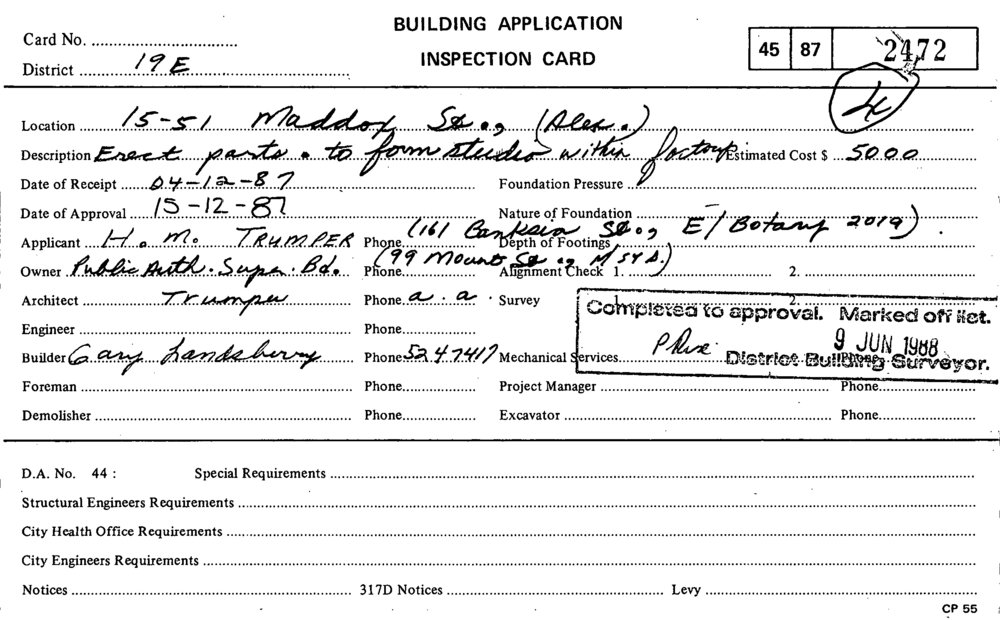 BUILDING APPLICATION
INSPECTION CARD
Card No.
District 19E
45 87 2472
4
Location 15-51 Maddox St., (Alex.)
Description Erect parts. to form studio within factory Estimated Cost $ 5000
Date of Receipt 04-12-87 Foundation Pressure
Date of Approval 15-12-87 Nature of Foundation
Applicant H. M. TRUMPER Phone (161 Banksia St., E/Botany 2019). Depth of Footings
Owner Public Auth. Super. Bd. Phone (99 Mount St., N/SYD.) Alignment Check 1. 2.
Architect Trumper Phone a.a. Survey 2.
Completed to approval. Marked off list.
Engineer Phone
9 JUN 1988
Builder Gary Landsberry Phone 5247417 Mechanical Services
District Building Surveyor.
Foreman Phone Project Manager Phone
Demolisher Phone Excavator Phone
D.A. No. 44 : Special Requirements
Structural Engineers Requirements
City Health Office Requirements
City Engineers Requirements
Notices 317D Notices Levy
CP 55